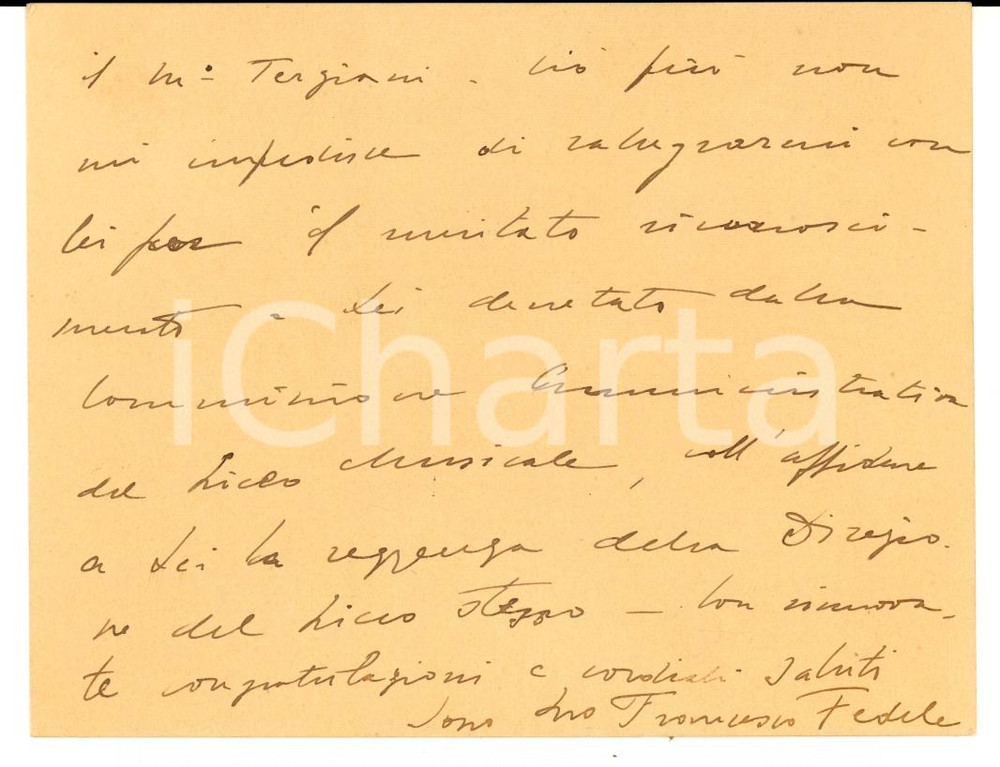 il M.o Terziani. Ciò però non
mi impedisce di rallegrarmi con
lei per il meritato riconosci-
mento a Lei decretato dalla
Commissione Amministrativa
del Liceo Musicale, coll'affidare
a Lei la reggenza della Direzio-
ne del Liceo stesso — Con rinnova-
te congratulazioni e cordiali saluti
sono suo Francesco Fedele
iCharta